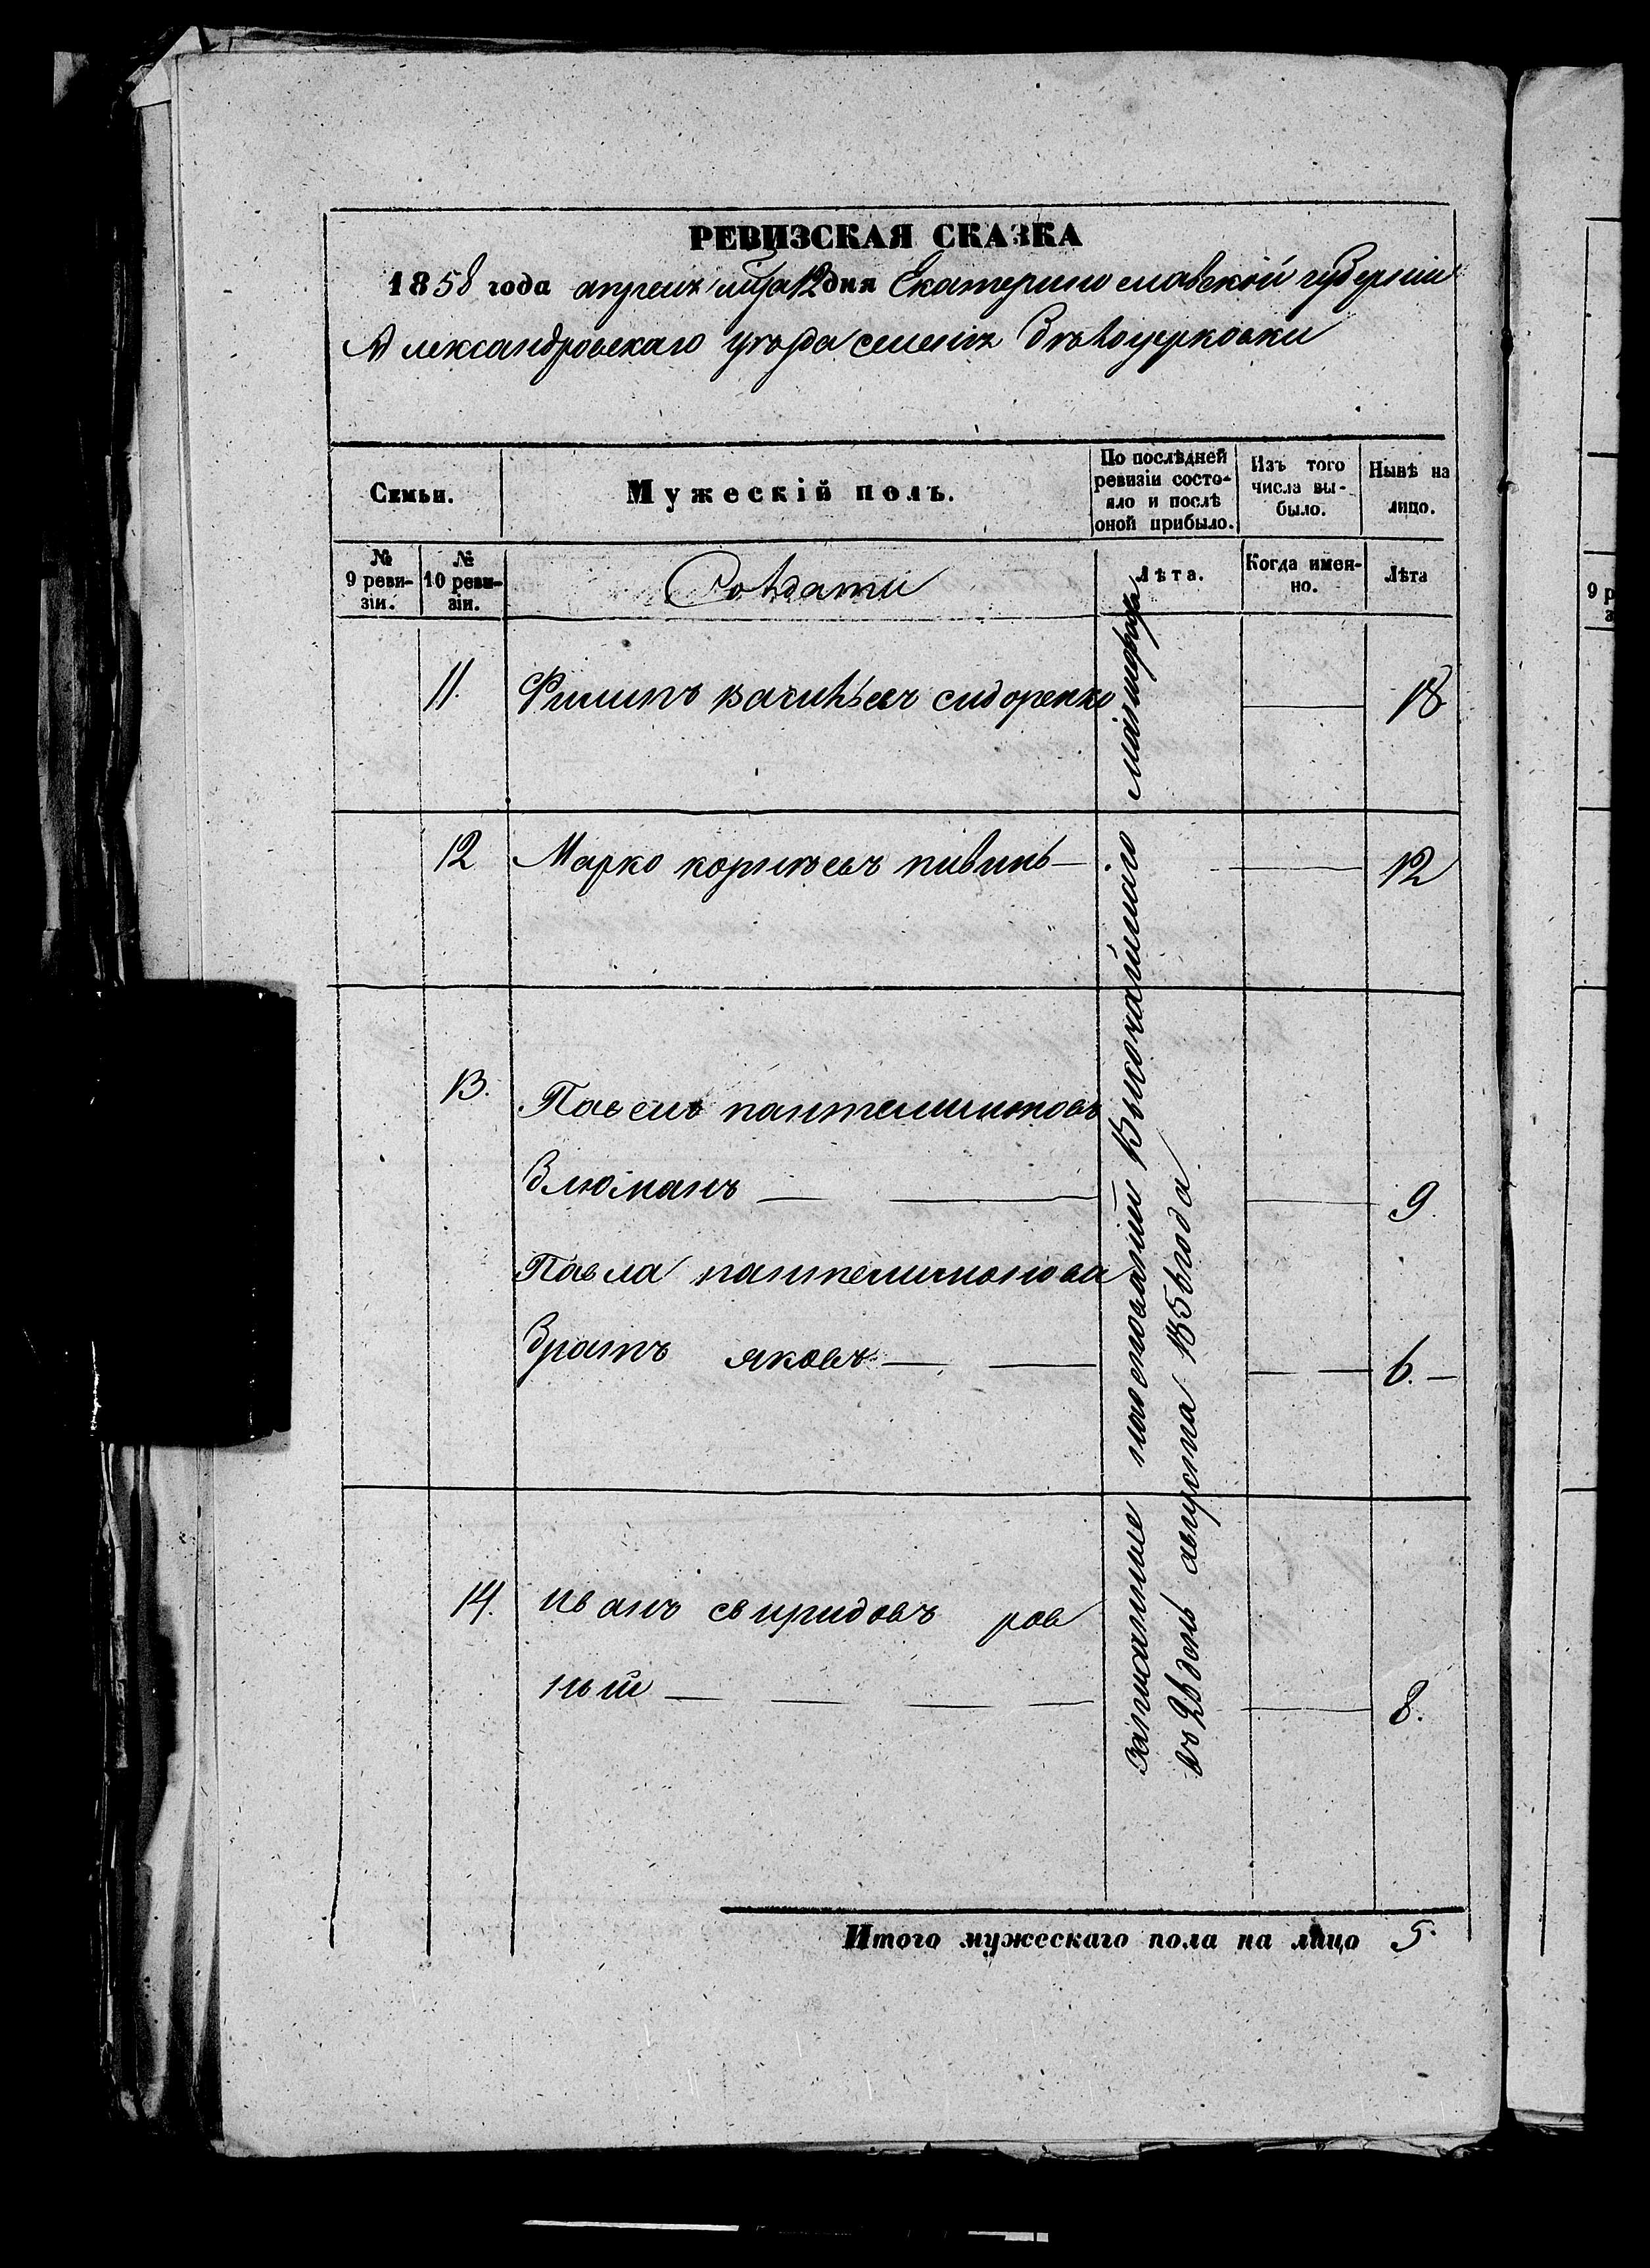 РЕВИЗСКАЯ СКАЗКА
1858 года апреля м̃ца 12 дня Екатеринославской губернии
Александровскаго уезда селения Белоцерковки
Семьи.
Мужескій полъ.
По послѣдней ревизіи состо-
яло и послѣ
оной прибыло.
Изъ того
числа вы-
было.
Нынѣ на
лицо.
№
9 реви-
зіи.
№
10 реви-
зіи.
Солдати
Лѣта.
Когда имен-
но.
Лѣта
11. Филипъ васильевъ сидоренко 18
12 Марко корнеевъ пивинь 12
13. Павелъ пантелимоновъ
Блюманъ 9.
Павла пантелимонова
братъ яковъ 6.
14. иванъ свиридовъ ров
ный 8.
Записанные на основании Высочайшаго манифеста
въ 26 день августа 1856 года
Итого мужескаго пола на лицо 5.
9 р